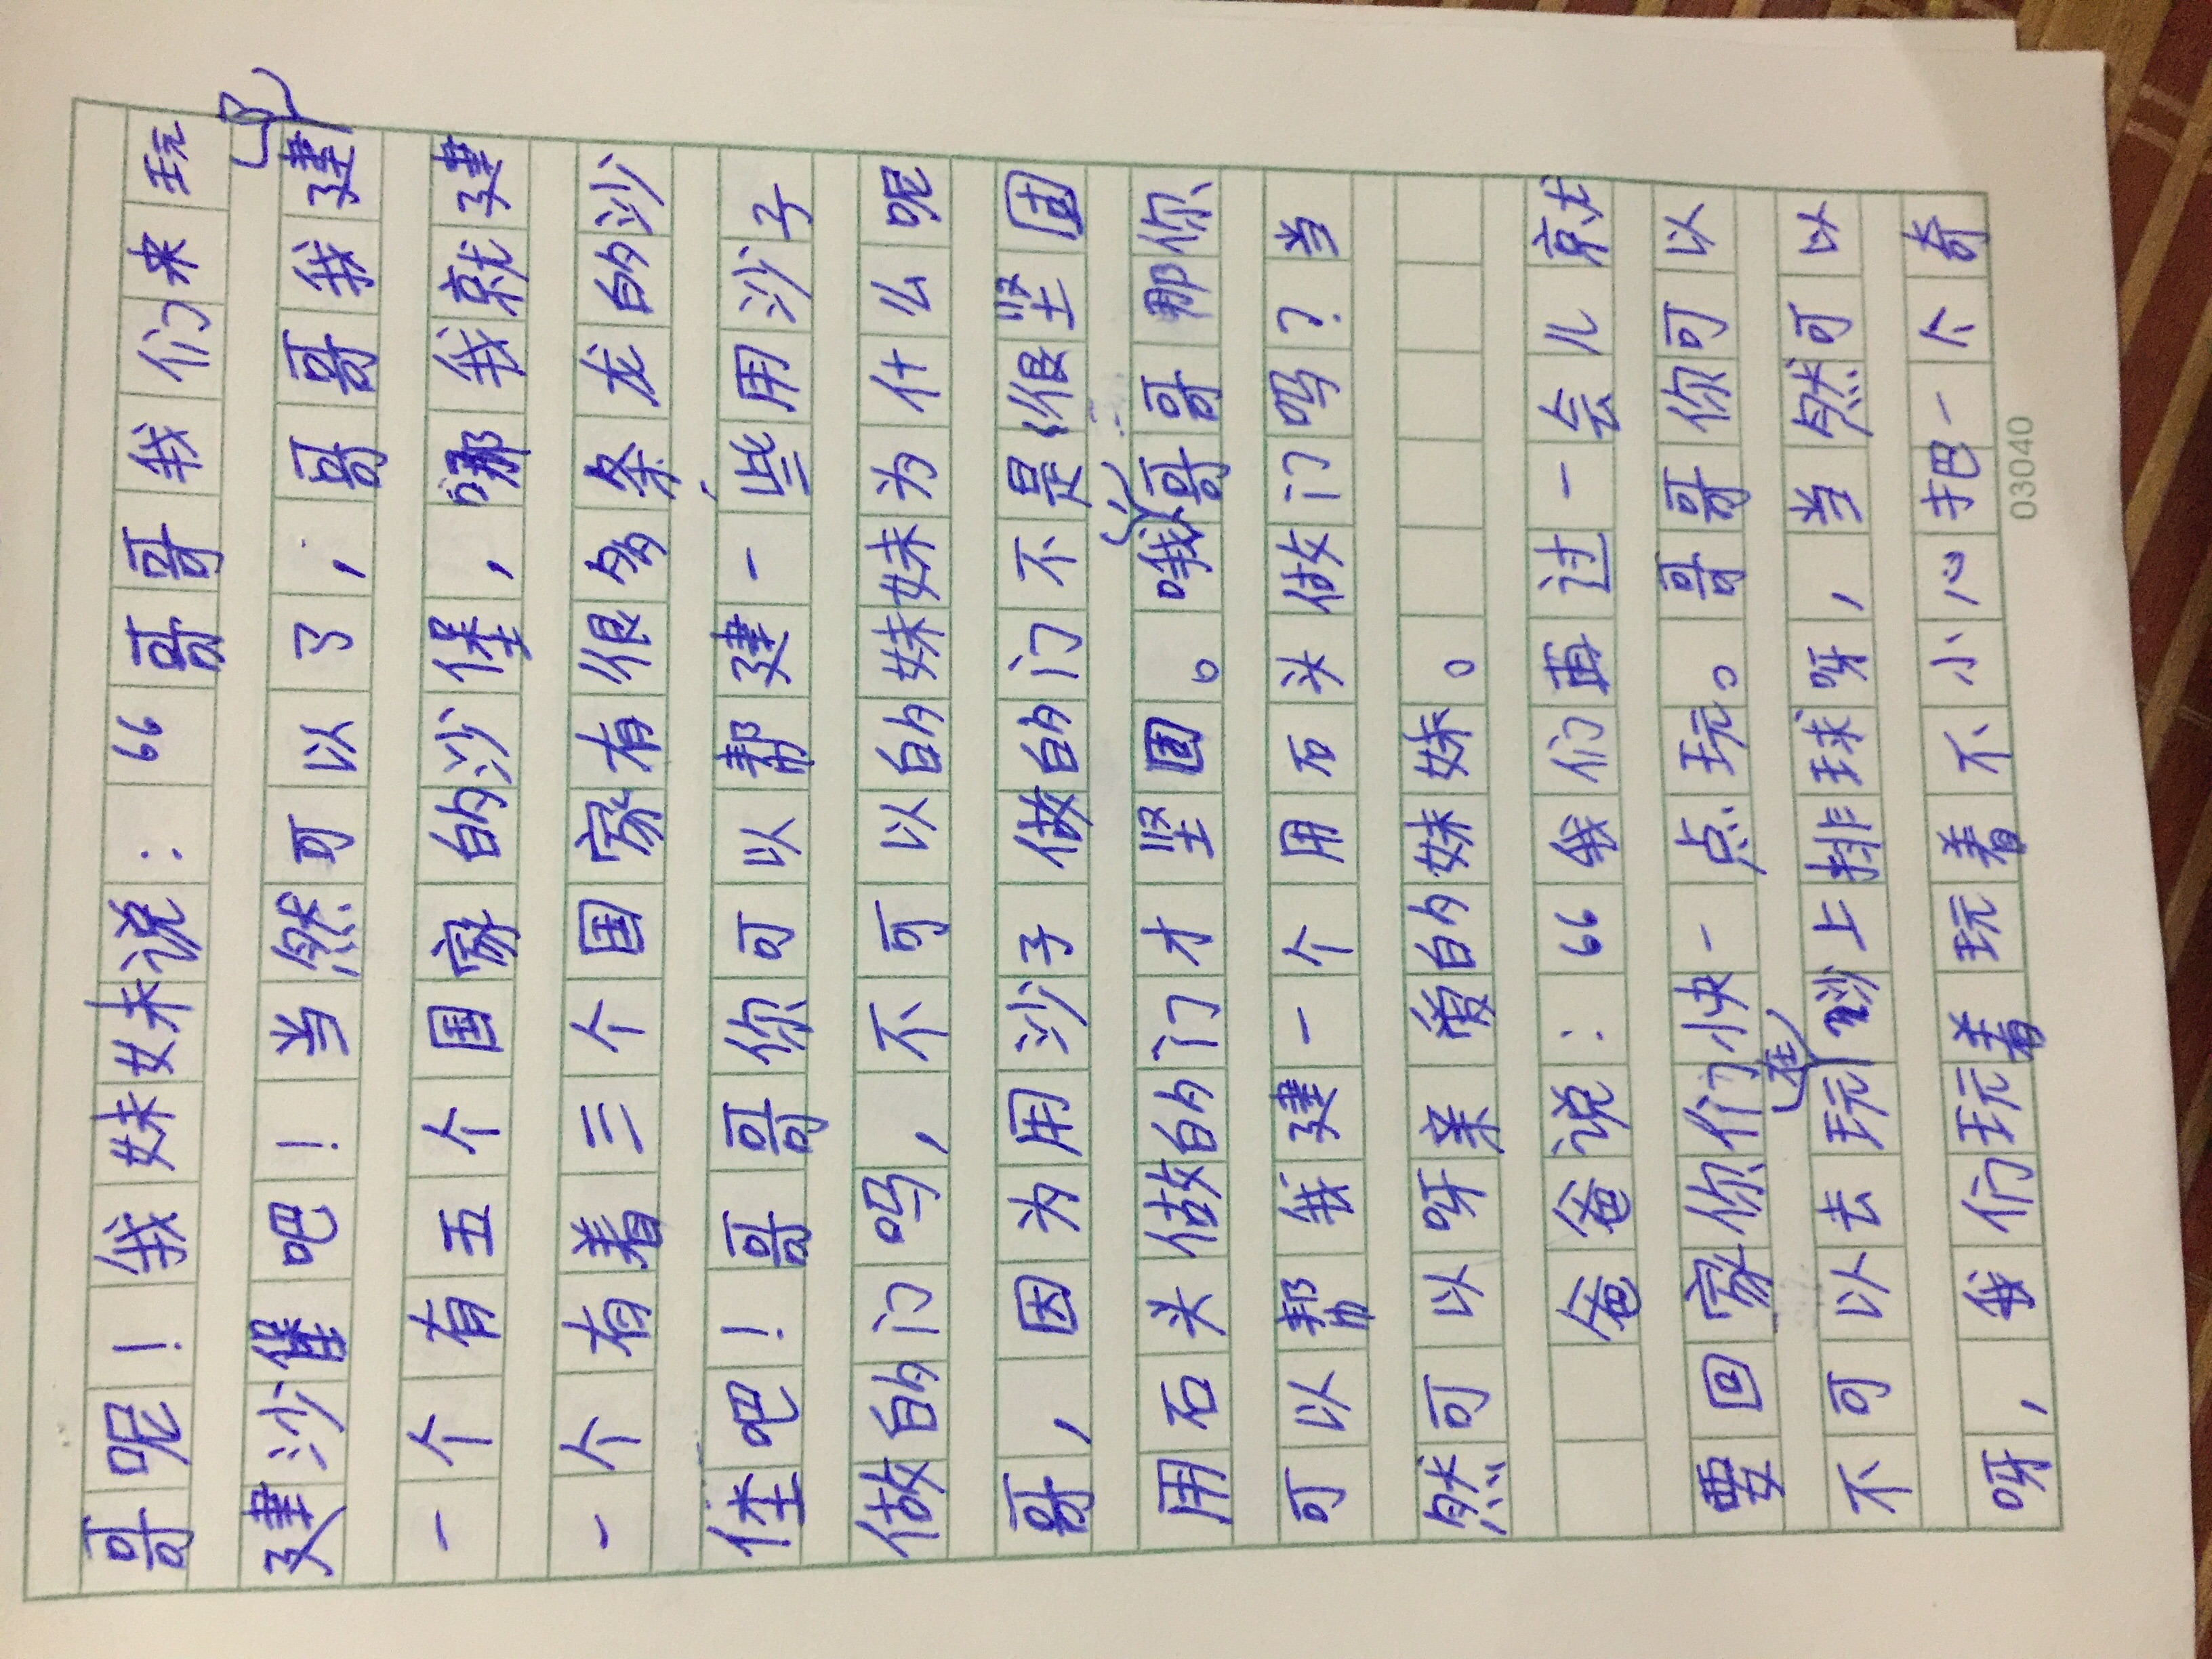 哥呢！我妹妹说：“哥哥我们来玩
建沙堡吧！当然可以了，哥哥我建了
一个有五个国家的沙堡，哪我就建
一个有着三个国家有很多条龙的沙
堡吧！哥哥你可以帮建一些用沙子
做的门吗，不可以的妹妹为什么呢
哥，因为用沙子做的门不是很坚固
用石头做的门才坚固。哦，哥哥那你
可以帮我建一个用石头做门吗？当
然可以呀亲爱的妹妹。
爸爸说：“我们再过一会儿就
要回家你们快一点玩。哥哥你可以
不可以去玩在沙上排球呀，当然可以
呀，我们玩着玩着不小心把一个奇
03040